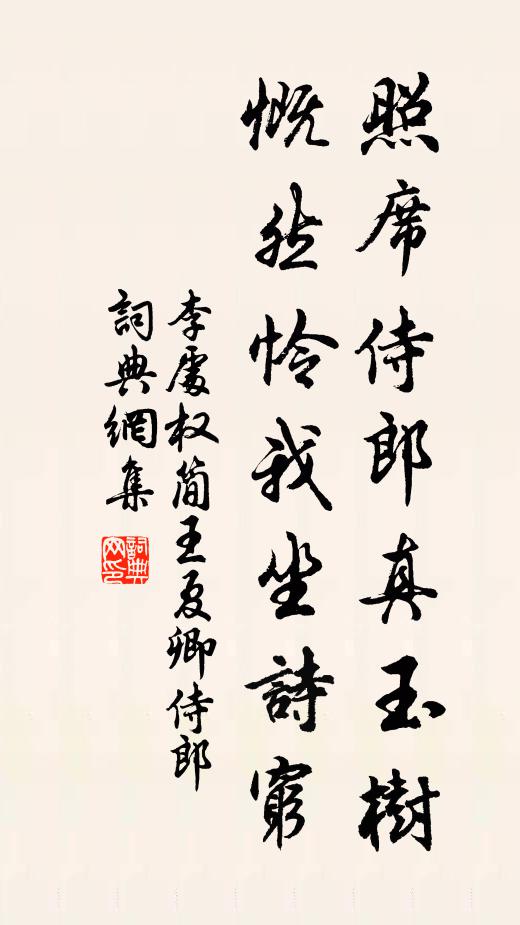 照席侍郎真玉樹
慨然怜我坐詩窮
李處权简王夏卿侍郎
詞典網集
詞典网印